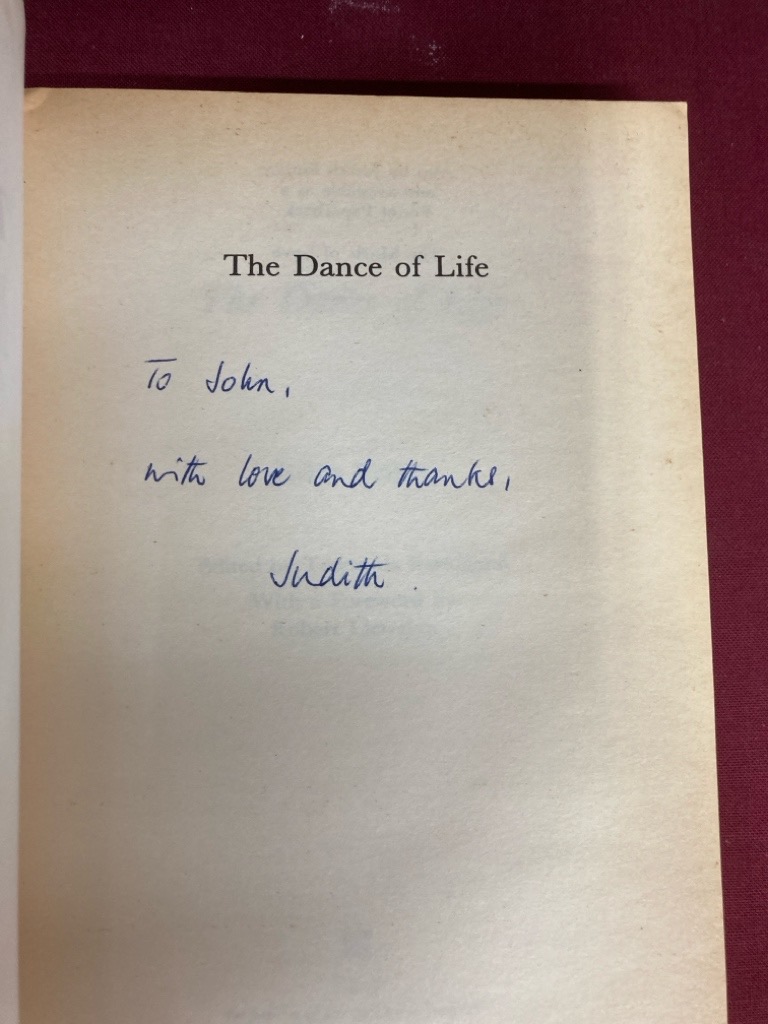 The Dance of Life
To John,
with love and thanks,
Judith.